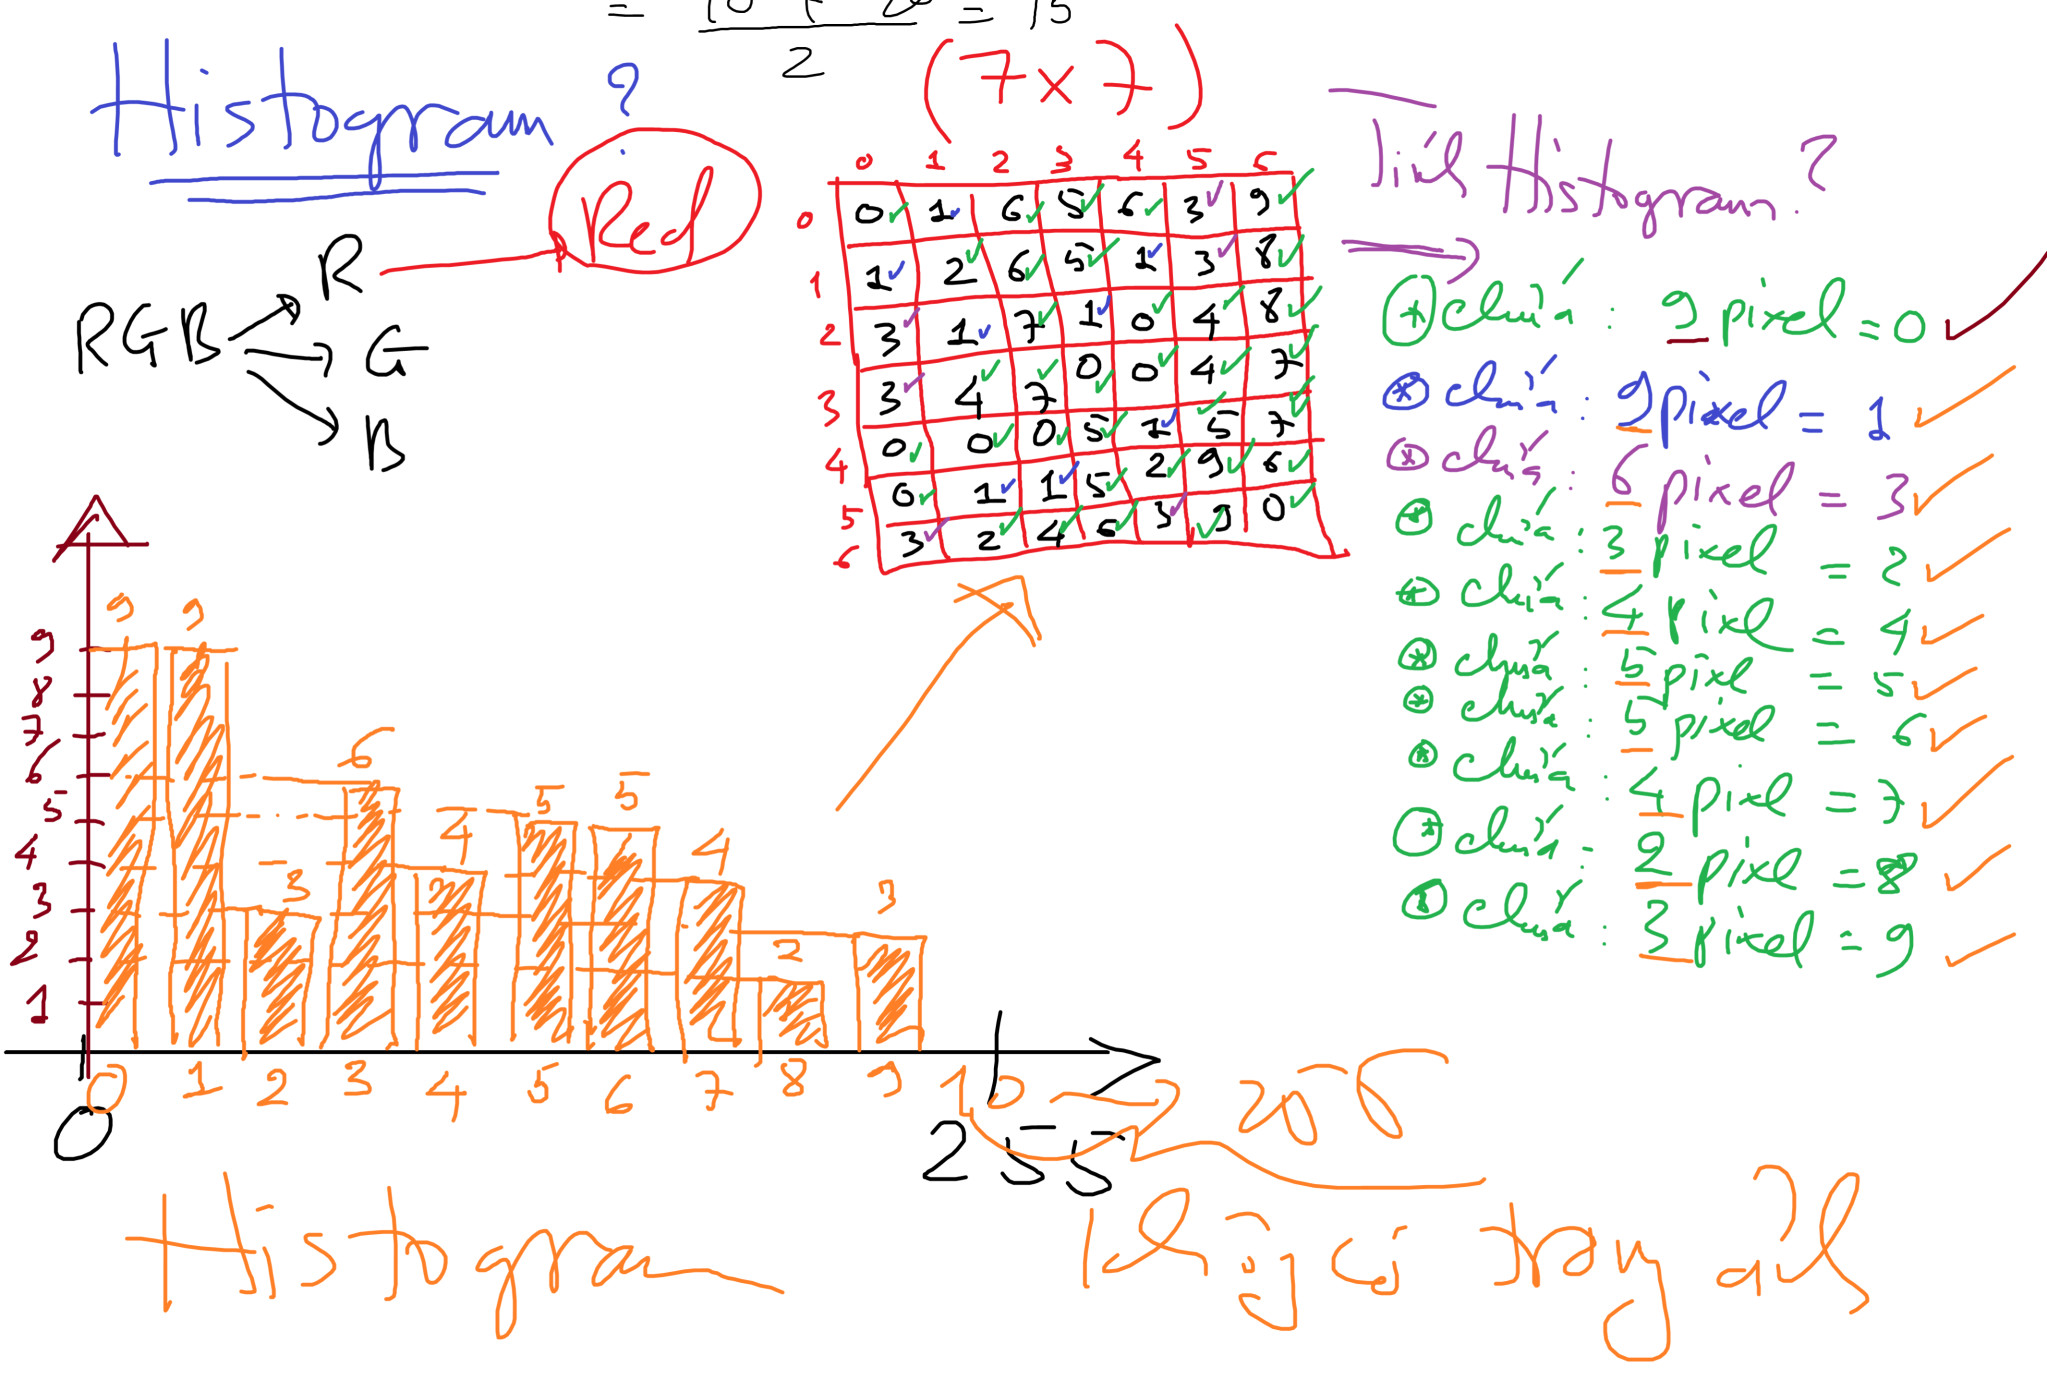 = 10 + 20 / 2 = 15
Histogram ?
(7 x 7)
Red
RGB
R
G
B
0 1 2 3 4 5 6
0 0 1 6 5 6 3 9
1 1 2 6 5 1 3 8
2 3 1 7 1 0 4 8
3 3 4 7 0 0 4 7
4 0 0 0 5 1 5 7
5 0 1 1 5 2 9 6
6 3 2 4 6 3 9 0
Tính Histogram ?
* chứa : 9 pixel = 0
* chứa : 9 pixel = 1
* chứa : 6 pixel = 3
* chứa : 3 pixel = 2
* chứa : 4 pixel = 4
* chứa : 5 pixel = 5
* chứa : 5 pixel = 6
* chứa : 4 pixel = 7
* chứa : 2 pixel = 8
* chứa : 3 pixel = 9
9 9 3 6 4 5 5 4 2 3
9
8
7
6
5
4
3
2
1
0 1 2 3 4 5 6 7 8 9 10
0
255
Histogram
không có trong ảnh